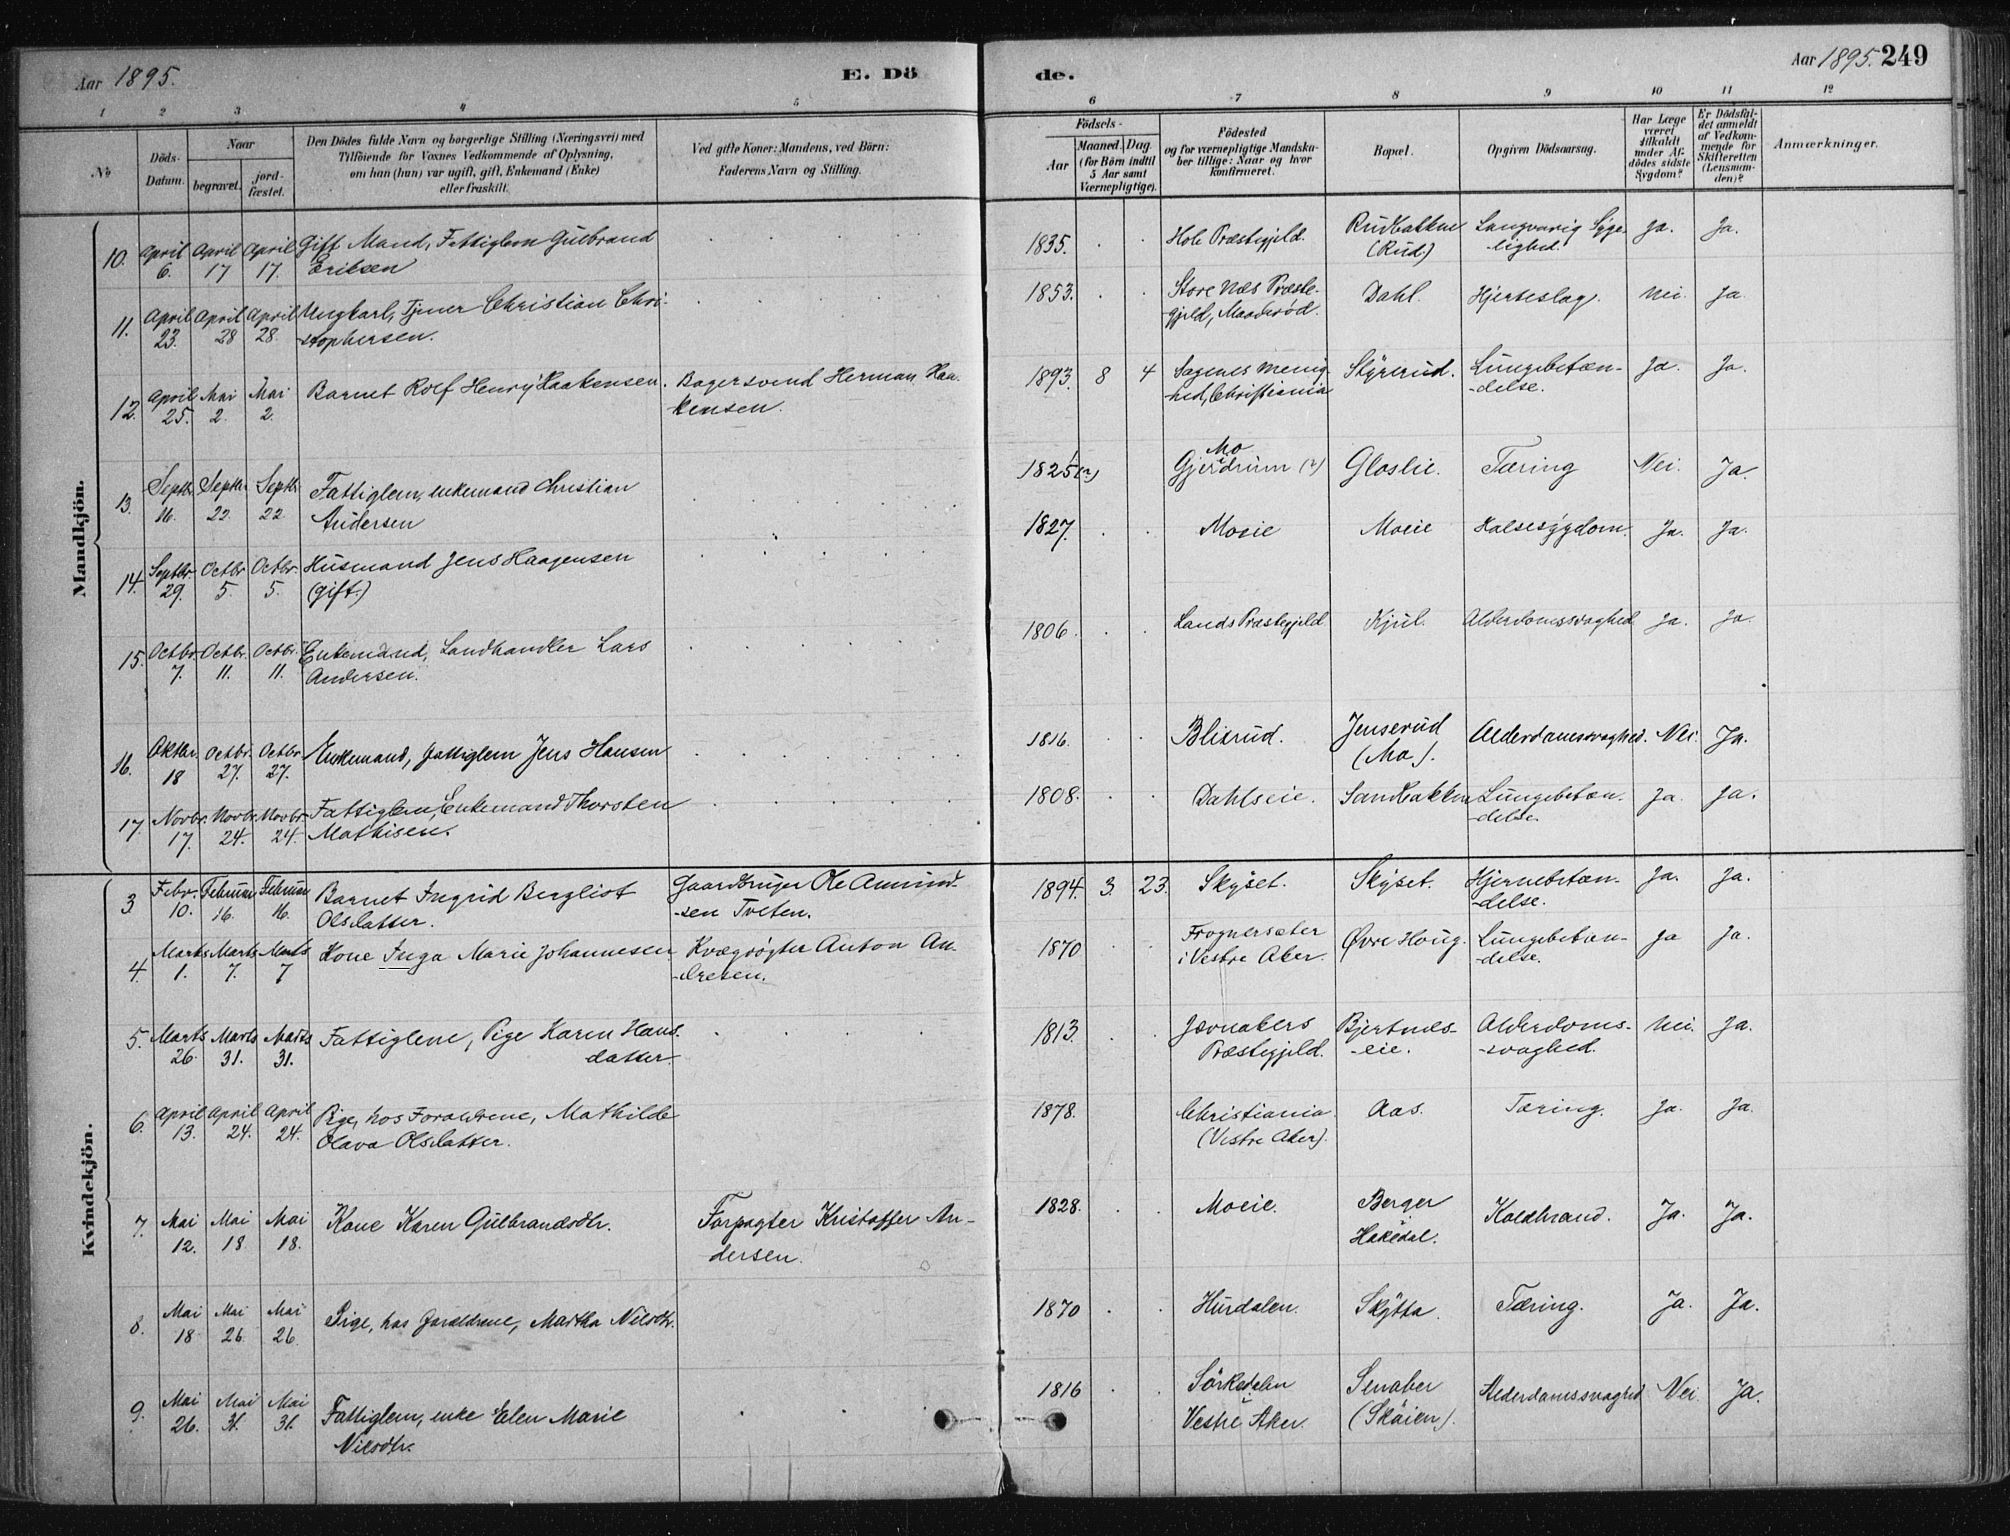 Aar 1895.
E. Dö
de.
Aar 1895. 249
1 2 3 4 5 6 7 8 9 10 11 12
No
Döds-
Datum.
Naar
begravet.
jord-
fæstet.
Den Dödes fulde Navn og borgerlige Stilling (Næringsvei) med
Tilföiende for Voxnes Vedkommende af Oplysning,
om han (hun) var ugift, gift, Enkemand (Enke)
eller fraskilt.
Ved gifte Koner: Mandens, ved Börn:
Faderens Navn og Stilling.
Födsels-
Aar
Maaned. Dag.
(for Börn indtil
5 Aar samt
Værnepligtige).
Födested
og for værnepligtige Mandska-
ber tillige: Naar og hvor
konfirmeret.
Bopæl.
Opgiven Dödsaarsag.
Har Læge
været
tilkaldt
under Af-
dödes sidste
Sygdom?
Er Dödsfal-
det anmeldt
af Vedkom-
mende for
Skifteretten
(Lensman-
den)?
Anmærkninger.
Mandkjön.
10. April 6. April 17 April 17. Gift Mand, Fattiglem Gulbrand
Eriksen
1835. Hole Præstegjeld. Rudbakken
(Rud.) Langvarig Syge-
lighed. Ja. Ja.
11. April 23. April 28 April 28. Ungkarl, Tjener Christian Chri-
stophersen.
1853. Store Næs Præste-
gjeld, Dahl. Hjerteslag. Nei. Ja.
12. April 25. Mai 2. Mai 2. Barnet Rolf Henry Haakensen. Bagersvend Herman Haa-
kensen.
1893. 8 4 Sagenes Menig-
hed, Christiania Styrerud. Lungebetæn-
-delse. Ja. Ja.
13. Septbr. 16. Septbr. 22. Septbr. 22. Fattiglem, enkemand Christian
Andersen
1825 (?) Mo
Gjerdrum (?) Gloslie. Tæring Nei. Ja.
14. Septbr. 29. Octbr. 5. Octbr. 5. Husmand Jens Haagensen
(gift.)
1827. Moeie Moeie Halsesygdom. Ja. Ja.
15. Octbr. 7. Octbr. 11. Octbr. 11. Enkemand, Landhandler Lars
Andersen.
1806. Lands Præstegjeld Kjul. Alderdomssvaghed Ja. Ja.
16. Oktbr. 18 Octbr. 27. Octbr. 27. Enkemand, Fattiglem Jens Hansen
1816. Blixrud. Jenserud
(Mo). Alderdomssvaghed. Nei. Ja.
17. Novbr. 17. Novbr. 24. Novbr. 24. Fattiglem, Enkemand Thorsten
Mathisen.
1808. Dahlseie. Sandbakken Lungebetæn-
-delse. Ja. Ja.
Kvindekjön.
3. Febr. 10. Februar 16. Februar 16. Barnet Ingrid Bergliot
Olsdatter. Gaardbruger Ole Amund-
sen Tveten.
1894. 3. 23. Skyset. Skyset. Hjernebetæn-
-delse. Ja. Ja.
4. Marts 1. Marts 7. Marts 7 Kone Inga Marie Johannesen Kvægrøgter Anton An-
-dresen.
1870 Frognersæter
i Vestre Aker. Øvre Houg. Lungebetæn-
-delse. Ja Ja.
5. Marts 26. Marts 31. Marts 31. Fattiglem, Pige Karen Hans-
datter
1813. Jevnakers
Præstegjeld. Bjertnes-
-eie. Alderdoms-
-svaghed. Nei. Ja.
6. April 13. April 24. April 24. Pige, hos Forældrene, Mathilde
Olava Olsdatter.
1878. Christiania
(Vestre Aker). Aas. Tæring. Ja. Ja.
7. Mai 12. Mai 18. Mai 18. Kone Karen Gulbrandsdtr. Forpagter Kristoffer An-
dersen.
1828. Moeie. Berger
Hakedal. Koldbrand. Ja. Ja.
8. Mai 18 Mai 26 Mai 26. Pige, hos Forældrene, Martha Nilsdtr.
1870 Hurdalen. Skytta. Tæring. Ja. Ja.
9. Mai 26. Mai 31. Mai 31. Fattiglem, enke Elen Marie
Nilsdtr.
1816 Sörkedalen
i
Vestre Aker. Senaber
(Skøien). Alderdomssvaghed Nei Ja.